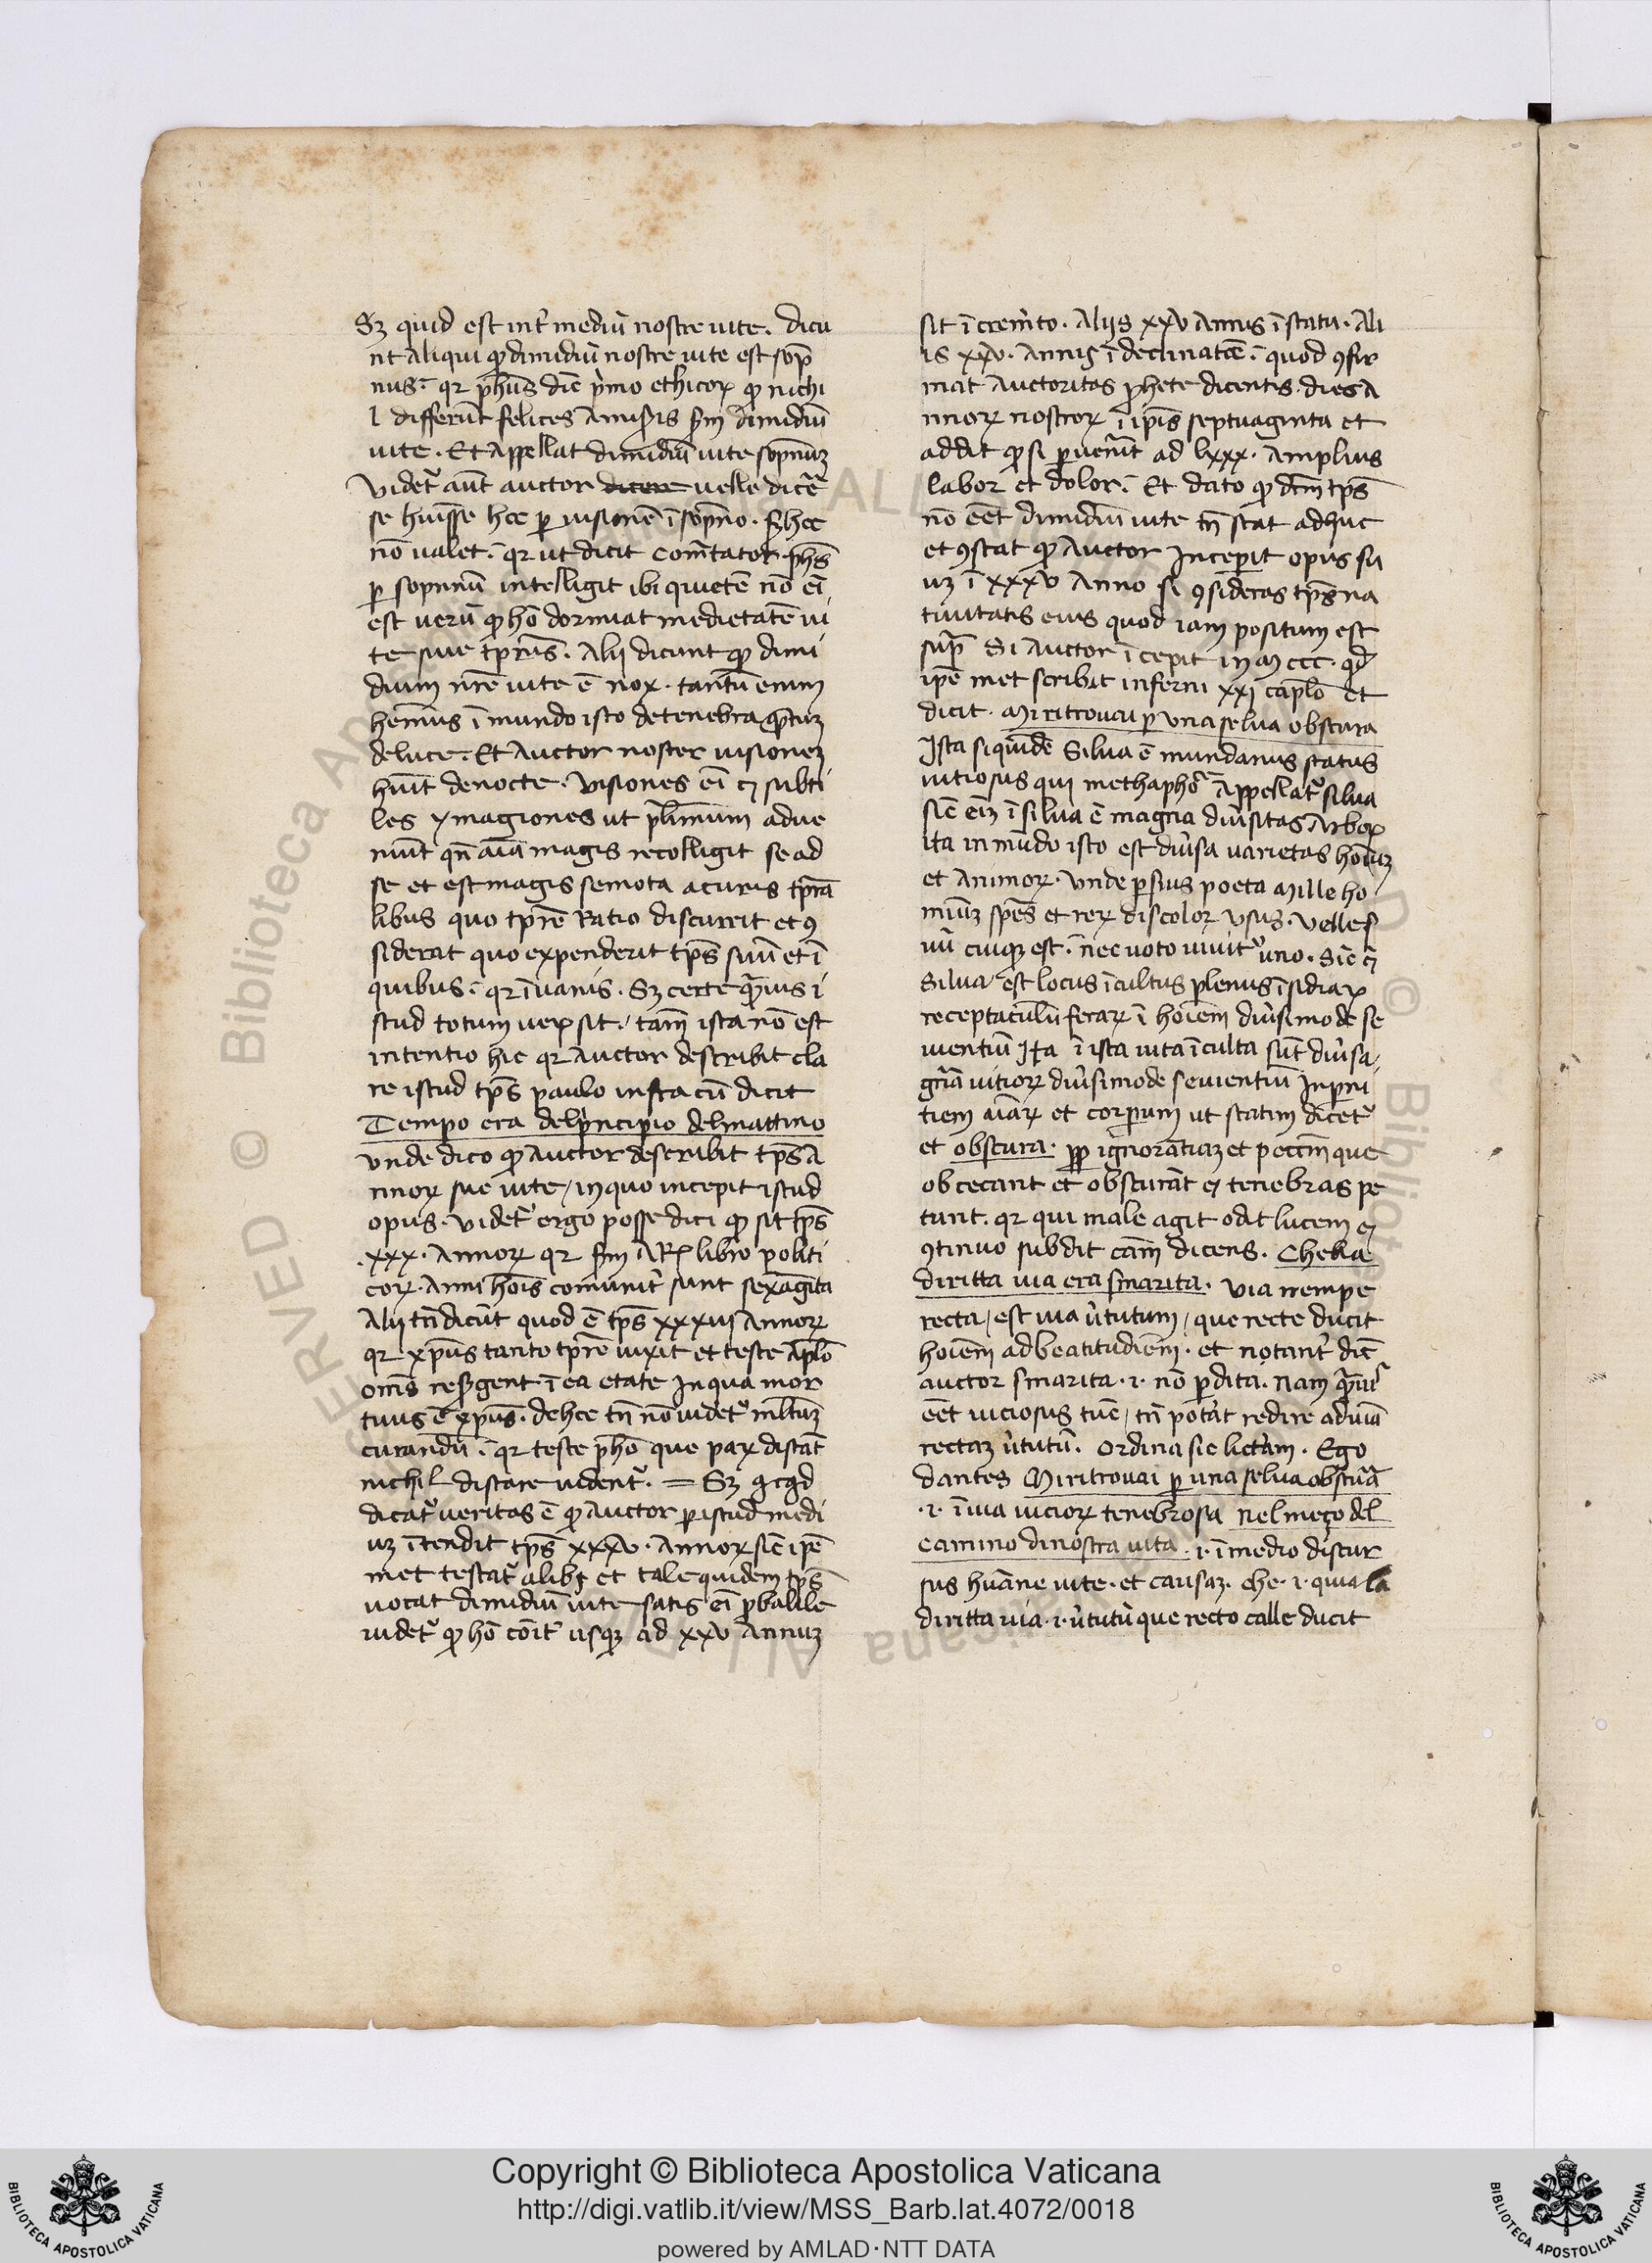 Sz quid est int̄ mediū nostre uite. dicu
nt aliqui ꝙ dimidiū nostre uite est sop̄
nus. qꝛ ph̄us dic̄ p̄mo ethicoꝝ ꝙ nichi
l differūt felices a mis̄is s̄m dimidiū
uite. Et appellat dimidiū uite sopnuꝫ
Videt᷑ aūt auctor dicere uelle dic̄e
se h̄uisse hec ꝑ uisionē ī sopno. S; hec
nō ualet. qꝛ ut dicit com̄tator. ph̄s
ꝑ sopnnū intelligit ibi quietē nō eī
est uerū ꝙ hō dormiat medietatē ui
te siue tp̄ris. Alij dicunt ꝙ dimi
dium nr̄e uite ē nox. tantū enim
hem̄us ī mundo isto de tenebra q̄ntuꝫ
de luce. Et Auctor noster uisioneꝫ
h̄uit de nocte. Visiones eī ⁊ subti
les ymagiones ut pl̄imum adue
niūt qn̄ aīa magis recolligit se ad
se et est magis semota a curis tp̄ra
libus quo tp̄re Ratio discurrit et ꝯ
siderat quo expenderit tp̄s suū et ī
quibus. qꝛ ī uanis. Sꝫ certe q̄uis i
stud totum ueꝝ sit. tam̄ ista nō est
intentio hic qꝛ Auctor describit cla
re istud tp̄s paulo infra cū dicit
Tempo era del principio del mattino
Vnde dico ꝙ Auctor describit tp̄s a
nnoꝝ sue uite / in quo incepit istud
opus. videt᷑ ergo posse dici ꝙ sit tp̄s
.xxx. Annoꝝ qꝛ s̄m AR̄ libro politi
coꝝ. Anni hoīs comunit̄ sunt sexagīta
Alij tn̄ dicūt quod ē tp̄s xxxiij Annoꝝ
qꝛ xp̄us tanto tp̄re uixit et teste ap̄lo
om̄s resurgent ī ea etate in qua mor
tuus ē xp̄us. de hec tn̄ nō videt᷑ ml̄tuꝫ
curandū. qꝛ teste ph̄o que paꝝ distāt
nichil distare uident᷑. = Sꝫ qcqd
dicat᷑ ueritas ē ꝙ Auctor ꝑ istud medi
uꝫ ītendit tp̄s xxxv. Annoꝝ sic̄ ip̄e
met testat᷑ alibi et tale quidem tp̄s
uocat dimidiū uite satis eī ꝓbabile
videt᷑ ꝙ hō cōit̄ usqꝫ ad xxv annuꝫ
sit ī crem̄to. Alijs xxv Annis ī statu. Ali
is xxv. Annis ī declinatōe. quod ꝯfir
mat Auctoritas ꝓphete dicentis. dies a
nnoꝝ nostroꝝ ī ip̄is septuaginta et
addit ꝙ si ꝑuen̄int ad lxxx. Amplius
labor et dolor. Et dato ꝙ dc̄m tp̄s
nō eēt dimidiū uite tn̄ stat adhuc
et ꝯstat ꝙ Auctor incepit opus su
uꝫ ī xxxv Anno si ꝯsideras tp̄s na
tiuitatis eius quod iam positum est
sup̄ Si Auctor īcepit in M ccc. qd
ip̄e met scribit inferni xxi cap̄lo et
dicit. Mi ritrouai ꝑ una selua obscura
Ista siquidē Silua ē mundanus status
uitiosus qui methapho᷑ Appellat᷑ silua
sic̄ eīꝫ ī silua ē magna diu̓sitas Arboꝝ
ita in mūdo isto est diu̓sa uarietas hoīuꝫ
et Animoꝝ. Vnde ꝑsius poeta Mille ho
minūꝫ sp̄es et reꝝ discolor usus. Velle s
uū cuiqꝫ est. nec uoto uiuit᷑ uno. Sic̄ ⁊
Silua est locus īcultus plenus īsidiaꝝ
receptaculū feraꝝ ī hoīem diu̓simode se
uientiū Ita ī ista uita īculta sūt diu̓sa
gn̄a uitioꝝ diu̓simode seuientiū In ꝑni
tiem aīaꝝ et corꝑum ut statim dicet᷑
et obscura. ꝓp ignorātiaꝫ et pecc̄m que
obcecant et obscurāt ⁊ tenebras pe
tunt. qꝛ qui male agit odit lucem ⁊
ꝯtinuo subdit cām dicens. Che la
diritta via era smarita. Via nempe
recta / est uia u̓tutum / que recte ducit
hoīem ad beatitudiēm. et notant᷑ dic̄
auctor smarita .i. nō ꝑdita. Nam q̄uis
eēt uiciosus tūc / tn̄ pot̄at redire ad uiā
rectaꝫ u̓tutū. Ordina sic lict̄am. Ego
dantes Mi ritrouai ꝑ una selua obscu̓a
.i. ī uia uicioꝝ tenebrosa Nel meço del
camino di nostra uita .i. ī medio discur
sus hūane uite. et causaꝫ. che .i. quia la
diritta uia .i. u̓tutū que recto calle ducit
Copyright © Biblioteca Apostolica Vaticana
http://digi.vatlib.it/view/MSS_Barb.lat.4072/0018
powered by AMLAD·NTT DATA
BIBLIOTECA APOSTOLICA VATICANA
BIBLIOTECA APOSTOLICA VATICANA